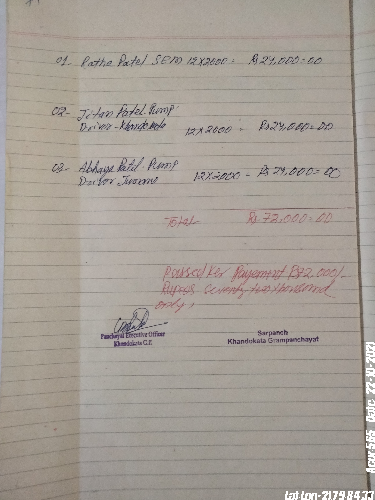 01- Rathe Patel SEM 12x2000 = Rs 24,000=00
02- Jitan Patel Pump
Driver-Khandokata 12x2000 = Rs 24,000=00
03- Abhaya Patel Pump
Driver 12x2000 - Rs 24,000=00
Total Rs 72,000=00
Passed for Payment Rs 72,000/-
Rupees seventy two thousand
only.
Panchayat Executive Officer
Khandokata G.P.
Sarpanch
Khandokata Grampanchayat
Date 22-10-2021